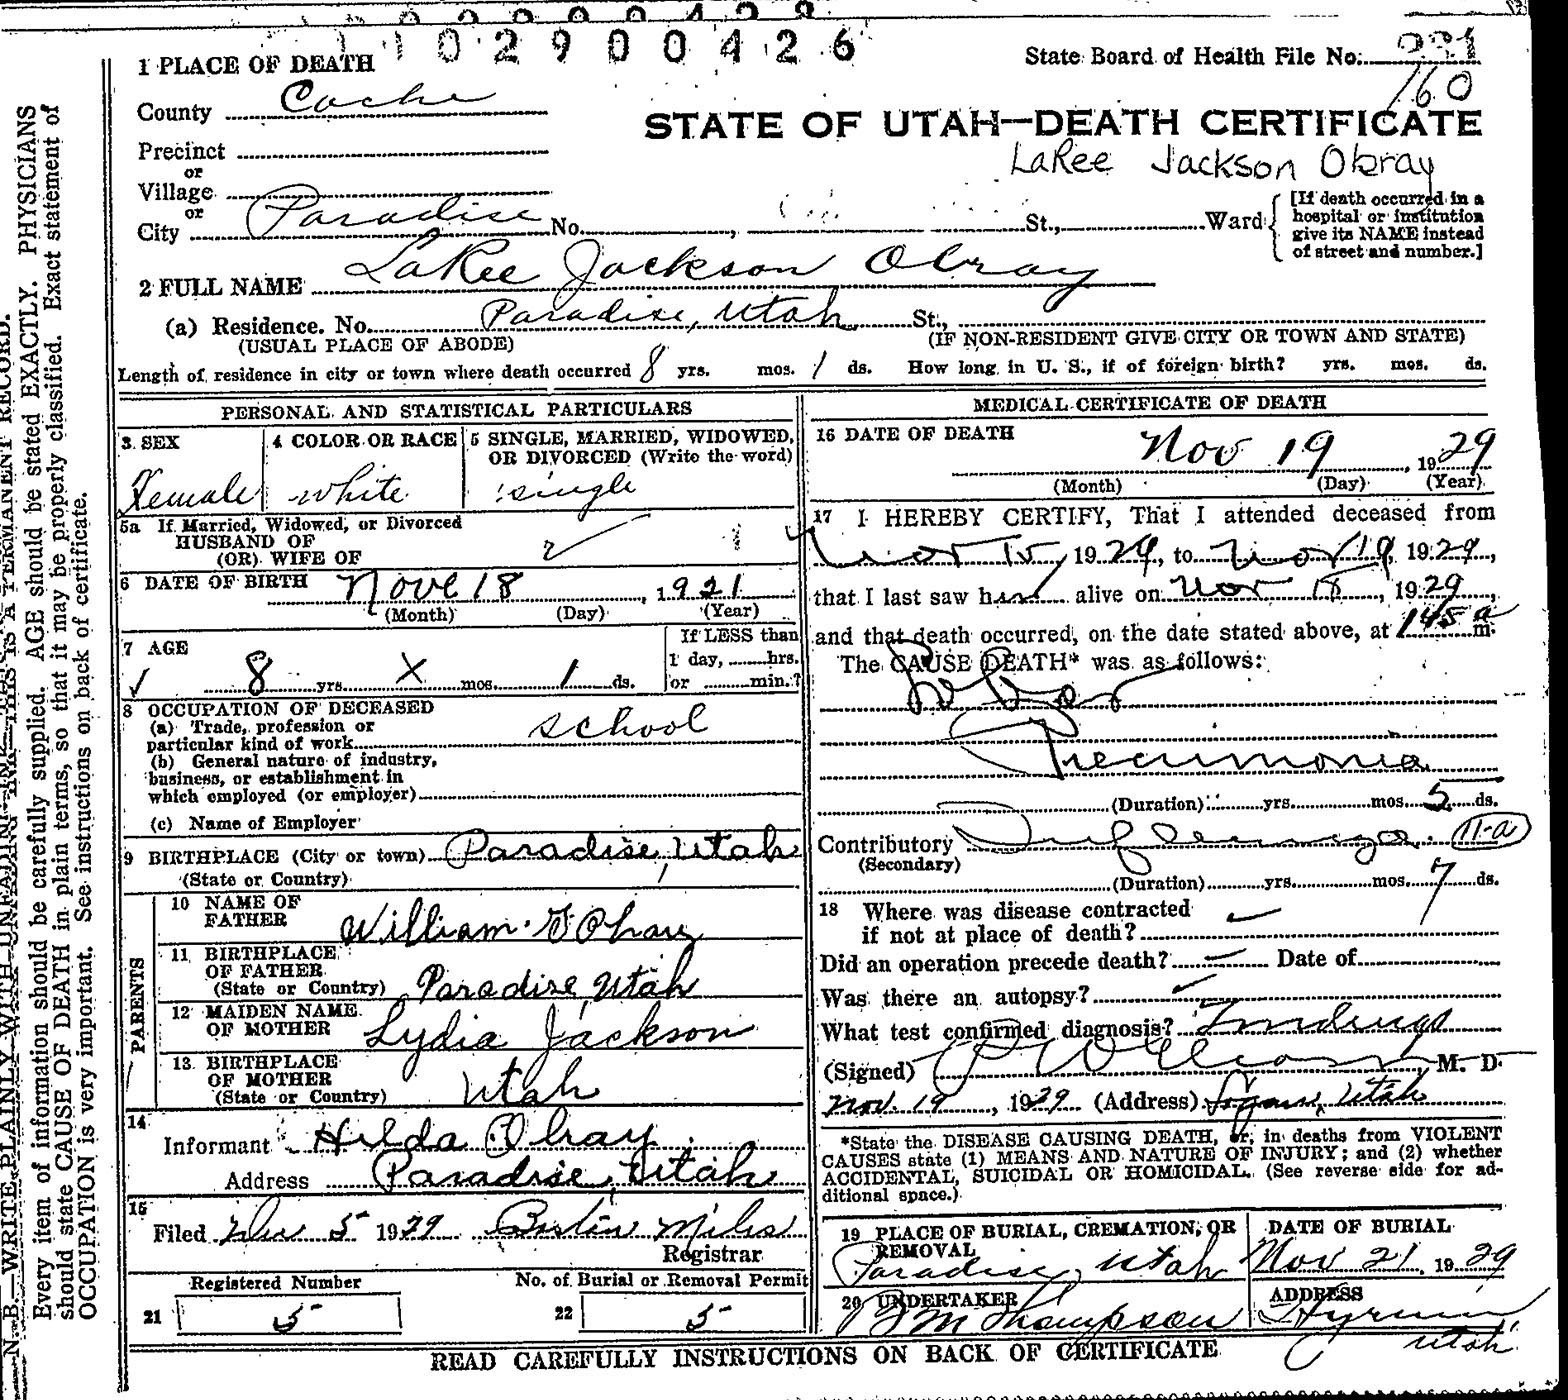 1 1 0 2 9 0 0 4 2 6
1 PLACE OF DEATH
State Board of Health File No.
160
County Cache
STATE OF UTAH—DEATH CERTIFICATE
Precinct
LaRee Jackson Obray
or
Village
or
City Paradise No. , St., Ward
[If death occurred in a
hospital or institution
give its NAME instead
of street and number.]
2 FULL NAME LaRee Jackson Obray
(a) Residence. No. Paradise, Utah St.,
(USUAL PLACE OF ABODE) (IF NON-RESIDENT GIVE CITY OR TOWN AND STATE)
Length of residence in city or town where death occurred 8 yrs. mos. 1 ds. How long in U. S., if of foreign birth? yrs. mos. ds.
PERSONAL AND STATISTICAL PARTICULARS
3 SEX 4 COLOR OR RACE 5 SINGLE, MARRIED, WIDOWED,
OR DIVORCED (Write the word)
Female white single
5a If Married, Widowed, or Divorced
HUSBAND OF
(OR) WIFE OF
6 DATE OF BIRTH Nove 18 , 1921
(Month) (Day) (Year)
7 AGE If LESS than
1 day, hrs.
8 yrs. X mos. 1 ds. or min.?
8 OCCUPATION OF DECEASED
(a) Trade, profession or
particular kind of work school
(b) General nature of industry,
business, or establishment in
which employed (or employer)
(c) Name of Employer
9 BIRTHPLACE (City or town) Paradise, Utah
(State or Country)
PARENTS
10 NAME OF
FATHER William Obray
11 BIRTHPLACE
OF FATHER
(State or Country) Paradise, Utah
12 MAIDEN NAME
OF MOTHER Lydia Jackson
13 BIRTHPLACE
OF MOTHER
(State or Country) Utah
14
Informant Hilda Obray
Address Paradise, Utah
15
Filed Dec 5 1929 Miles
Registrar
Registered Number No. of Burial or Removal Permit
21 5 22 5
MEDICAL CERTIFICATE OF DEATH
16 DATE OF DEATH Nov 19 , 1929
(Month) (Day) (Year)
17 I HEREBY CERTIFY, That I attended deceased from
Nov 15, 1929, to Nov 19, 1929,
that I last saw her alive on Nov 18, 1929,
and that death occurred, on the date stated above, at 145 a m.
The CAUSE DEATH* was as follows:
Lobar
Pneumonia
(Duration) yrs. mos. 5 ds.
Contributory Influenza 11-a
(Secondary)
(Duration) yrs. mos. 7 ds.
18 Where was disease contracted
if not at place of death?
Did an operation precede death? Date of
Was there an autopsy?
What test confirmed diagnosis? Findings
(Signed) M. D.
Nov. 19, 1929 (Address) Logan, Utah
*State the DISEASE CAUSING DEATH, or, in deaths from VIOLENT
CAUSES state (1) MEANS AND NATURE OF INJURY; and (2) whether
ACCIDENTAL, SUICIDAL OR HOMICIDAL. (See reverse side for ad-
ditional space.)
19 PLACE OF BURIAL, CREMATION, OR
REMOVAL
DATE OF BURIAL
Paradise, Utah Nov 21, 1929
20 UNDERTAKER ADDRESS
B M Thompson Hyrum
Utah
READ CAREFULLY INSTRUCTIONS ON BACK OF CERTIFICATE
N. B.—WRITE PLAINLY WITH UNFADING INK—THIS IS A PERMANENT RECORD.
Every item of information should be carefully supplied. AGE should be stated EXACTLY. PHYSICIANS
should state CAUSE OF DEATH in plain terms, so that it may be properly classified. Exact statement of
OCCUPATION is very important. See instructions on back of certificate.